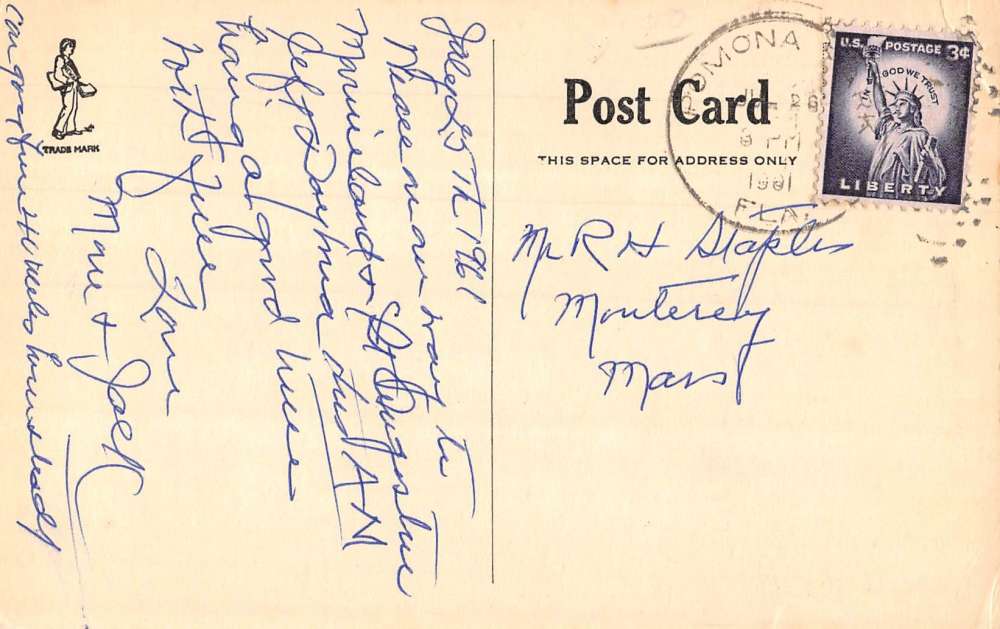 July 25 Th 1961
Wese now on way to
Marineland & St Augustine
Left Daytona this AM
having a good time
with Jule
Love
Mom & Jack
TRADE MARK
Post Card
THIS SPACE FOR ADDRESS ONLY
POMONA
26
PM
1961
FLA.
U.S. POSTAGE 3¢
IN GOD WE TRUST
LIBERTY
Mr R H Staples
Monterey
Mass